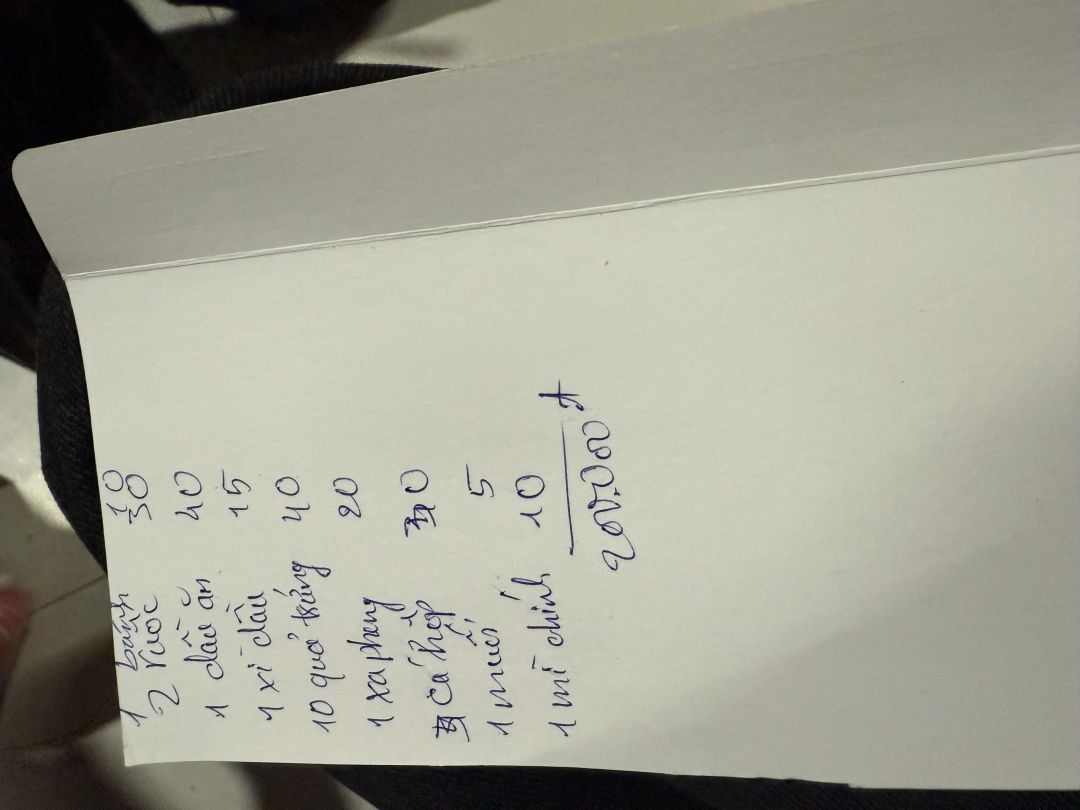 1 bánh 10
2 ruốc 30
1 dầu ăn 40
1 xì dầu 15
10 quả trứng 40
1 xà phòng 20
3 cá hộp 30
1 muối 5
1 mì chính 10
200.000đ